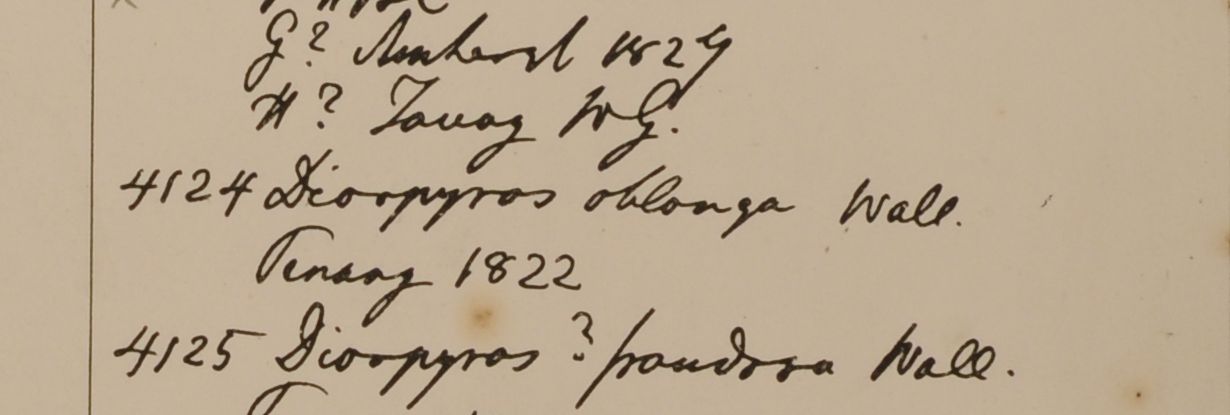 G? Amherst 1827
H? Tavoy WG.
4124 Diospyros oblonga Wall.
Penang 1822
4125 Diospyros ? frondosa Wall.